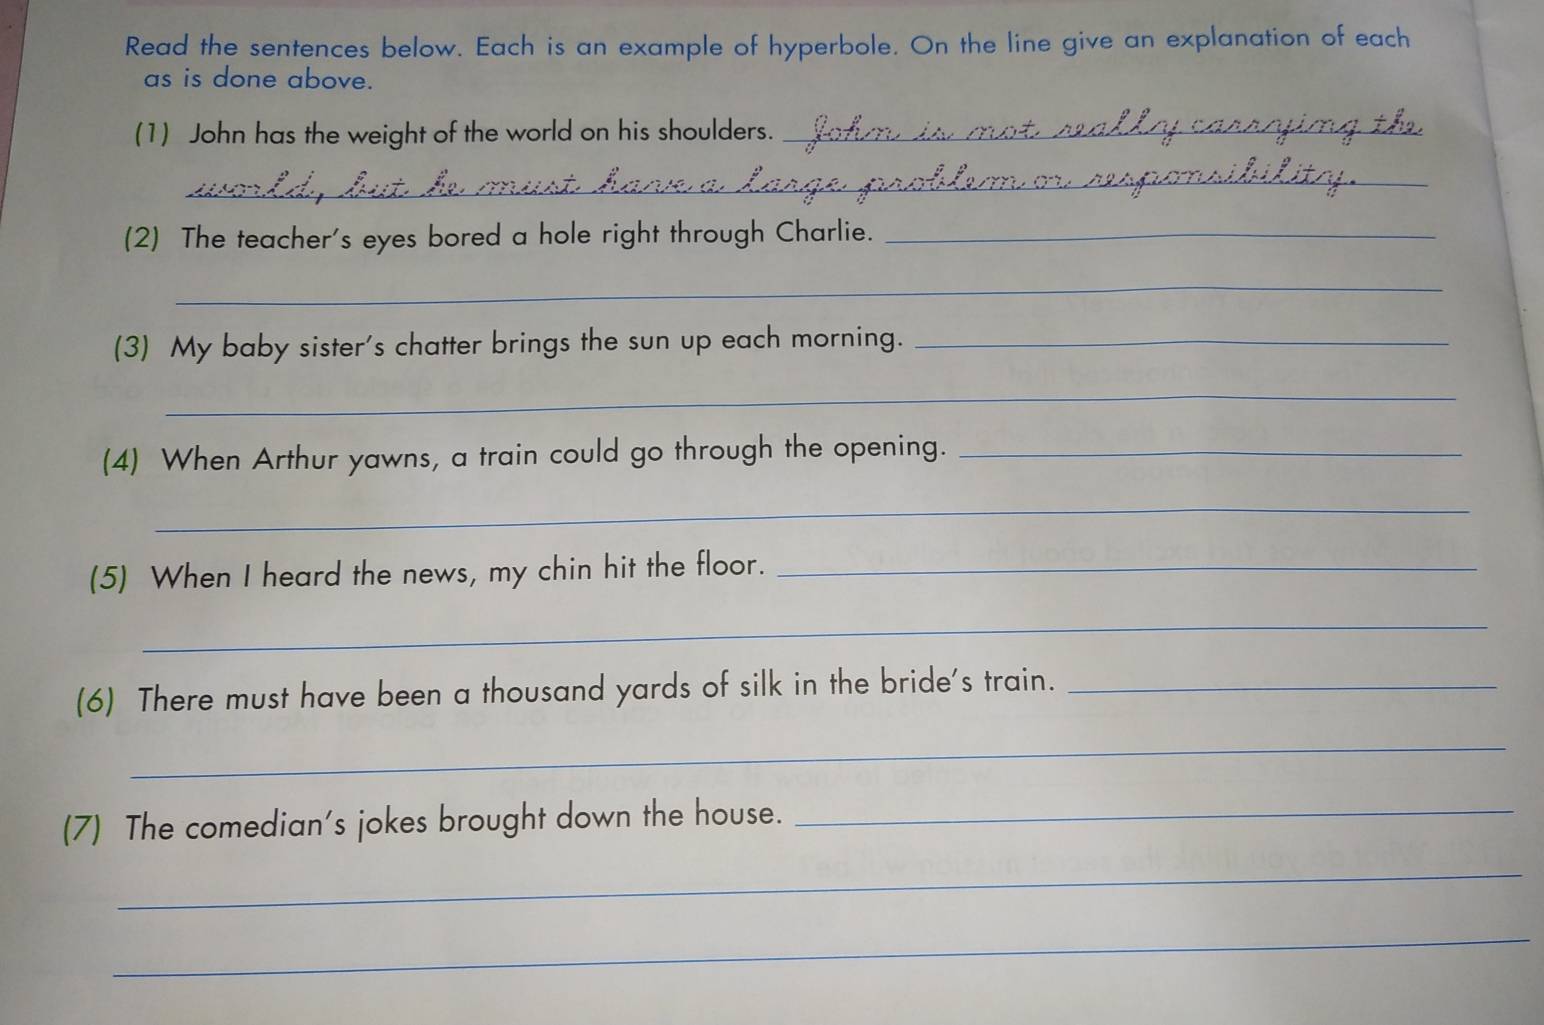 Read the sentences below. Each is an example of hyperbole. On the line give an explanation of each
as is done above.
(1) John has the weight of the world on his shoulders. John is not really carrying the
world, but he must have a large problem or responsibility.
(2) The teacher's eyes bored a hole right through Charlie.
(3) My baby sister's chatter brings the sun up each morning.
(4) When Arthur yawns, a train could go through the opening.
(5) When I heard the news, my chin hit the floor.
(6) There must have been a thousand yards of silk in the bride's train.
(7) The comedian's jokes brought down the house.